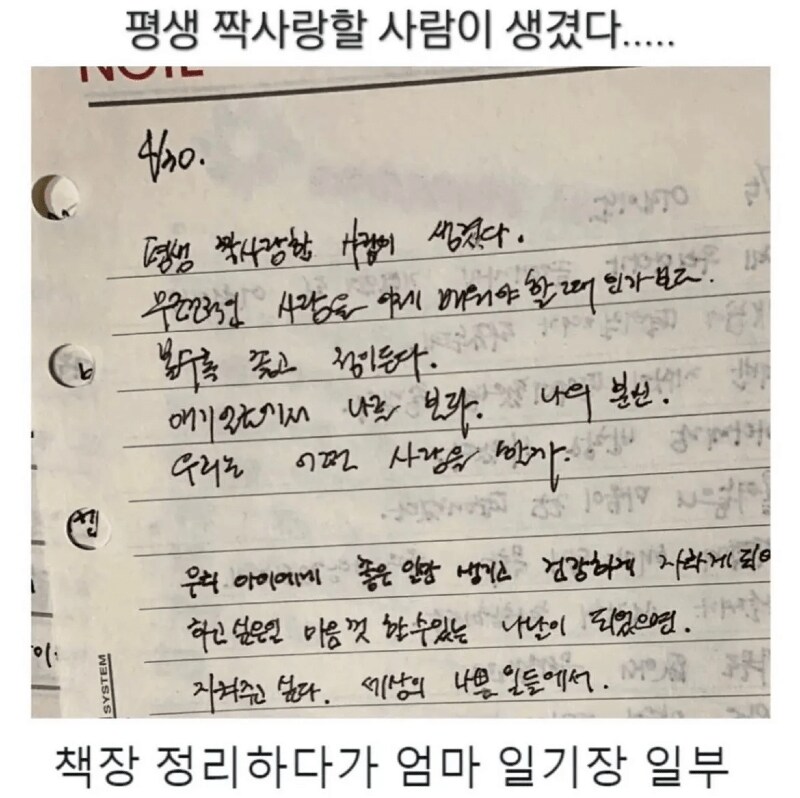 평생 짝사랑할 사람이 생겼다.....
NOTE
4/30.
평생 짝사랑할 사람이 생겼다.
무조건적인 사랑을 이제 배워야 할 때 인가보다.
볼수록 좋고 정이든다.
얘기 나를 보라. 나의 분신.
우리는 어떤 사랑을 할까.
우리 아이에게 좋은 일만 생기고 건강하게 자라게 되어
하고싶은일 마음껏 할 수 있는 나날이 되었으면.
지켜주고 싶다. 세상의 나쁜 일들에서.
SYSTEM
책장 정리하다가 엄마 일기장 일부